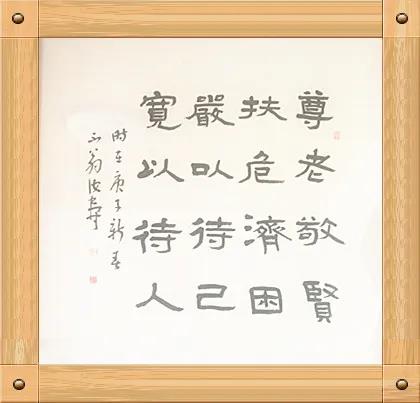 尊老敬賢
扶危濟困
嚴以待己
寬以待人
時在庚子新春